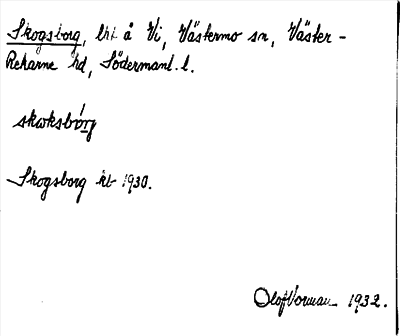 Skogsborg, lht å Vi, Västermo sn, Väster-
Rekarne hd, Södermanl. l.
skωksbórg
Skogsborg kb 1930.
Olof Vorman 1932.